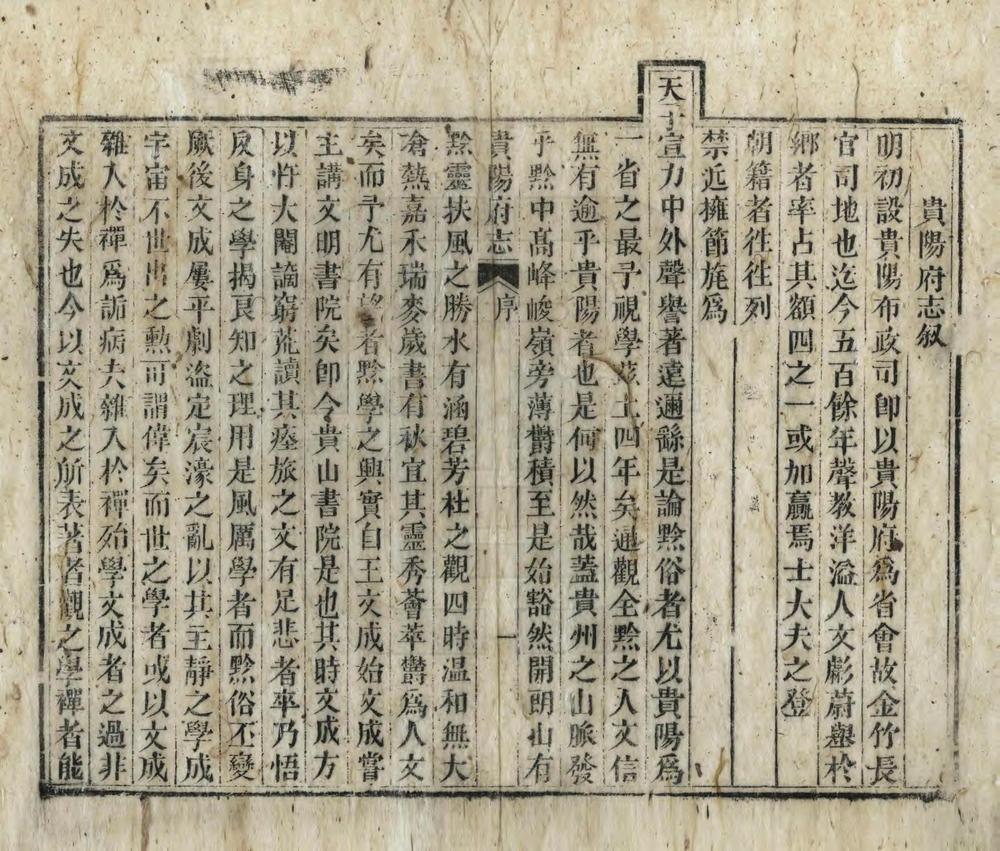 貴陽府志叙
明初設貴陽布政司卽以貴陽府爲省會故金竹長
官司地也迄今五百餘年聲教洋溢人文彪蔚舉於
鄉者率占其額四之一或加贏焉士大夫之登
朝籍者往往列
禁近擁節旄爲
天子宣力中外聲譽著遠邇繇是論黔俗者尤以貴陽爲
一省之最予視學茲土四年矣通觀全黔之人文信
無有逾乎貴陽者也是何以然哉蓋貴州之山脈發
乎黔中高峰峻嶺旁薄欝積至是始豁然開朗山有
貴陽府志 序 一
黔靈扶風之勝水有涵碧芳杜之觀四時温和無大
凔熱嘉禾瑞麥歲書有秋宜其靈秀薈萃欝爲人文
矣而予尤有望者黔學之興實自王文成始文成嘗
主講文明書院矣卽今貴山書院是也其時文成方
以忤大閹謫窮荒讀其瘞旅之文有足悲者卒乃悟
反身之學揭良知之理用是風厲學者而黔俗丕變
厥後文成屢平劇盜定宸濠之亂以其主靜之學成
宇宙不世出之勲可謂偉矣而世之學者或以文成
雜入於禪爲詬病夫雜入於禪殆學文成者之過非
文成之失也今以文成之所表著者觀之學禪者能